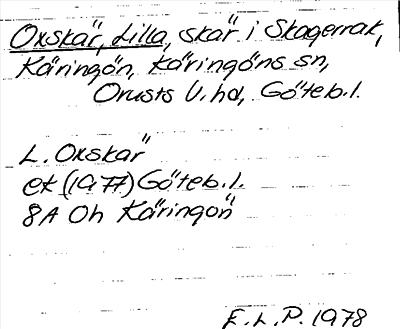 Oxskär, Lilla, skär i Skagerrak,
Käringön, Käringöns sn,
Orusts V. hd, Göteb. l.
L. Oxskär
ek (1977) Göteb. l.
8A 0h Käringön
E. L. P. 1978